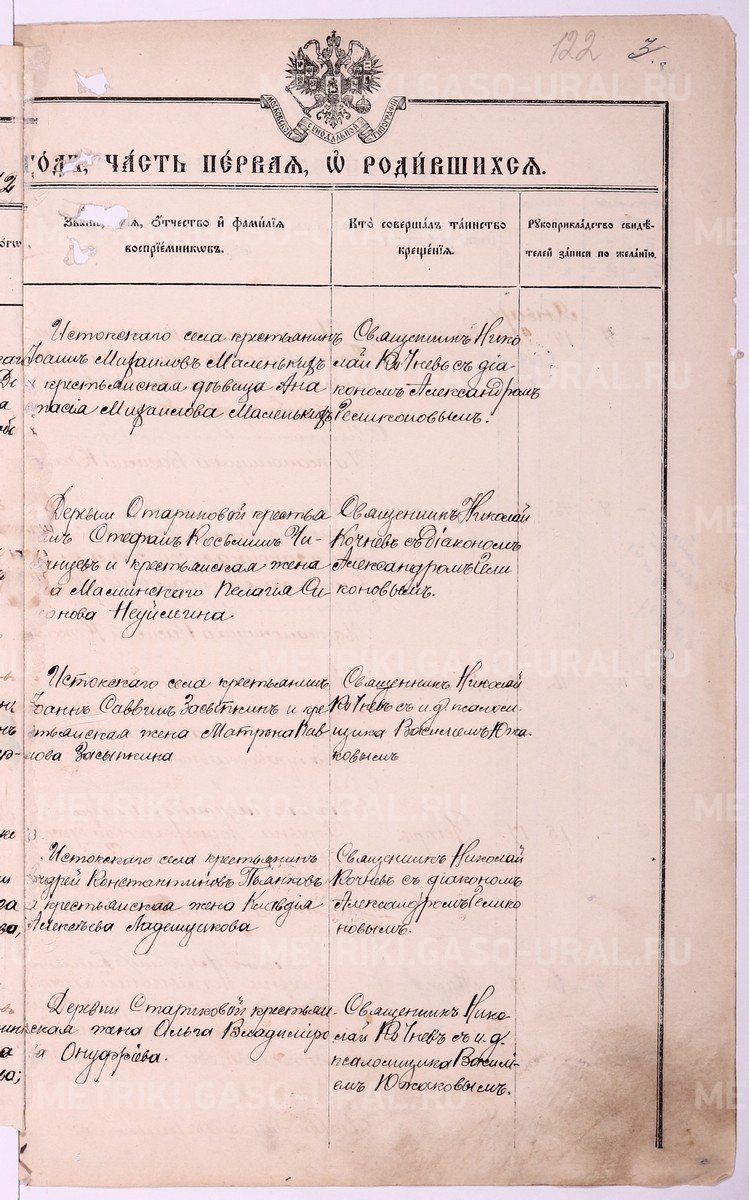 122 3.
МОСКОВСКОЙ СѴНОДАЛЬНОЙ ТИПОГРАФІИ
ГО́ДЪ, ЧА́СТЬ ПЕ́РВАЯ, Ѡ РОДИ́ВШИХСЯ.
Отчество и фамилія
воспріемниковъ.
Кто совершалъ таинство
крещенія.
Рукоприкладство свидѣ-
телей записи по желанію.
Истокскаго села крестьянинъ
Іоаннъ Михаиловъ Маленькихъ
крестьянская дѣвица Ана
тасія Михаилова Маленькихъ
Священникъ Нико
лай Кочневъ съ діа
кономъ Александромъ
Геликоновымъ.
Деревни Стариковой крестья
Стефанъ Косьминъ
и крестьянская жена
Маминскаго Пелагія Си
онова Неуймина
Священникъ Николай
Кочневъ съ діакономъ
Александромъ Гели
коновымъ.
Истокскаго села крестьянинъ
Іоаннъ Саввинъ Засыпкинъ и кре
стьянская жена Матрона Пав
лова Засыпкина
Священникъ Николай
Кочневъ съ и.д. псалом-
щика Василіемъ Южа
ковымъ
Истокскаго села крестьянинъ
Андрей Константиновъ Пьянковъ
и крестьянская жена Клавдія
Алексѣева Ладейщикова
Священникъ Николай
Кочневъ съ діакономъ
Александромъ Гелико
новымъ.
Деревни Стариковой крестьян
ская жена Ольга Владиміро
ва Онуфріева.
Священникъ Нико
лай Кочневъ съ и.д.
псаломщика Василі-
емъ Южаковымъ.
METRIKI.GASO-URAL.RU